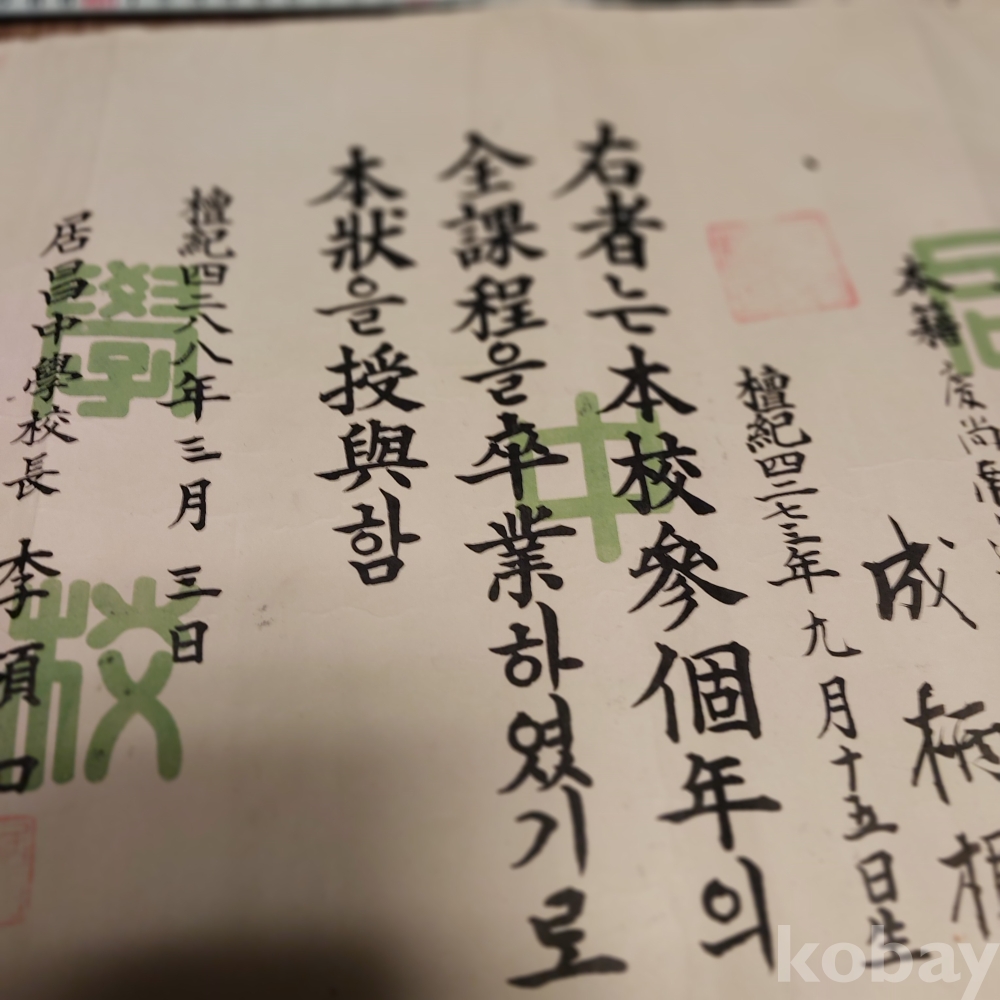 本籍 慶尚南
成柄
檀紀四二七三年九月十五日生
右者는本校參個年의
全課程을卒業하였기로
本狀을授與함
檀紀四二八八年三月三日
居昌中學校長 李
中
學校
kobay